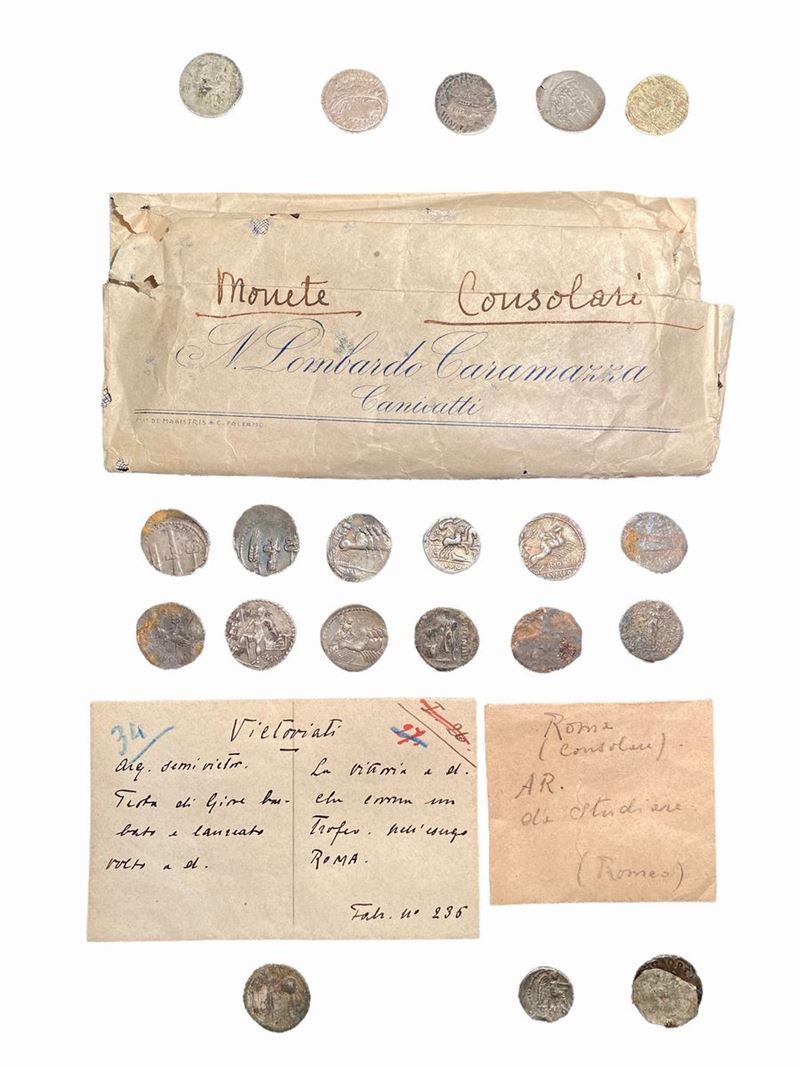 Monete Consolari
N. Lombardo Caramazza
Canicatti
DE MAGISTRIS & C. PALERMO
34
Victoriati
I. 96.
97
Arg. semivictor.
Testa di Giove bar-
bato e laureato
volto a d.
La Vittoria a d.
che corona un
Trofeo. nell'esergo
ROMA.
Fabr. no 236
Roma
(Consolari).
AR.
da studiare.
(Romeo)